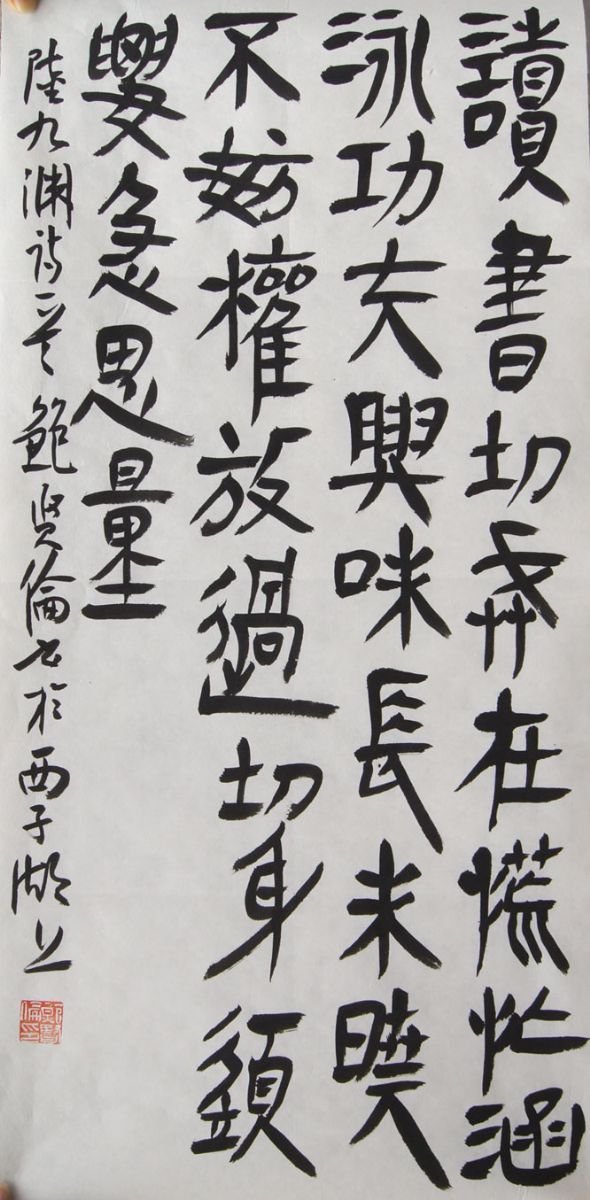 讀書切戒在慌忙涵
泳功夫興味長未曉
不妨權放過切身須
要急思量
陸九渊詩一首 鮑賢倫书於西子湖上
鮑賢倫印